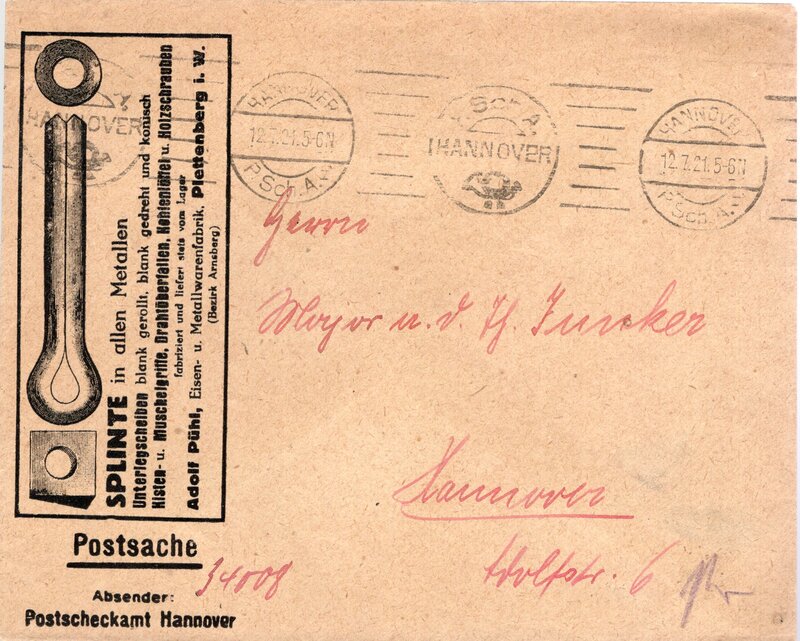 SPLINTE in allen Metallen
Unterlegscheiben blank gerollt, blank gedreht und konisch
Kisten- u. Muschelgriffe, Drahtüberfallen, Kohlenlöffel u. Holzschrauben
fabriziert und liefert stets vom Lager
Adolf Pühl, Eisen- u. Metallwarenfabrik, Plettenberg i. W.
(Bezirk Arnsberg)
HANNOVER
HANNOVER
12.7.21.5-6N
P.Sch.A.
P.Sch.A.
HANNOVER
HANNOVER
12.7.21.5-6N
P.Sch.A.
Herrn
Major a. d. Th. Juncker
Hannover
Adolfstr. 6
Postsache
34008
Absender:
Postscheckamt Hannover